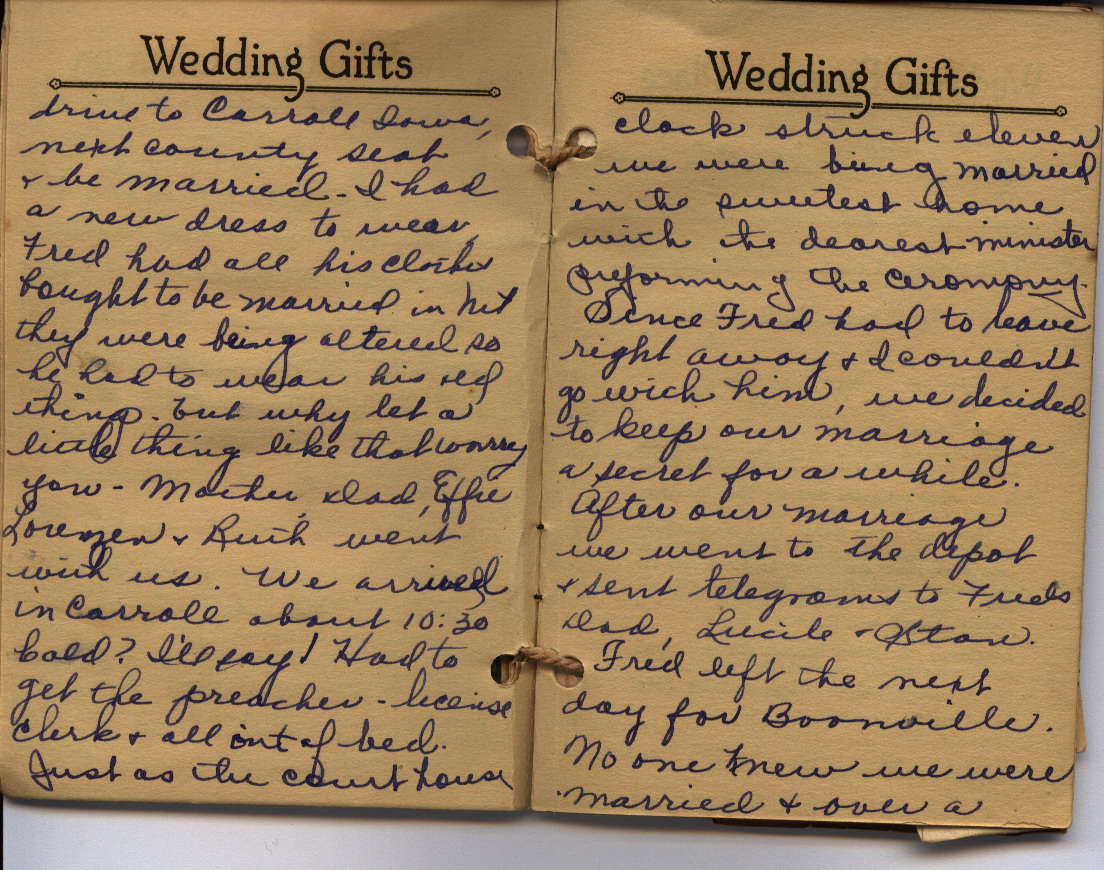 Wedding Gifts
drive to Carroll Iowa,
next county seat
& be married - I had
a new dress to wear,
Fred had all his clothes
bought to be married in but
they were being altered so
he had to wear his old
thing. but why let a
little thing like that worry
you - Mother, Dad, Effie
Lorenzen & Ruth went
with us. We arrived
in Carroll about 10:30
bold? I'll say! Had to
get the preacher - license
clerk & all out of bed.
Just as the court house
Wedding Gifts
clock struck eleven
we were being married
in the sweetest home
with the dearest minister
preforming the ceromony.
Since Fred had to leave
right away & I couldn't
go with him, we decided
to keep our marriage
a secret for a while.
After our marriage
we went to the depot
& sent telegrams to Freds
Dad, Lucile & Stan.
Fred left the next
day for Boonville.
No one knew we were
married & over a